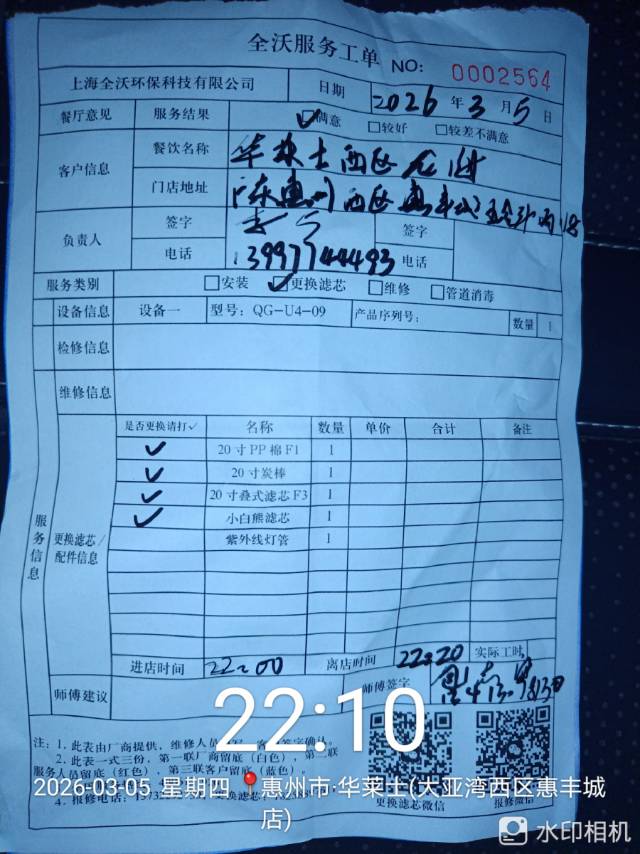 全沃服务工单 NO: 0002564
上海全沃环保科技有限公司 日期 2026年3月5日
餐厅意见 服务结果 ☑满意 □较好 □较差不满意
客户信息 餐饮名称 华莱士西区石化
门店地址 广东惠州西区惠丰城
负责人 签字 签字
电话 13997744493 电话
服务类别 □安装 ☑更换滤芯 □维修 □管道消毒
设备信息 设备一 型号: QG-U4-09 产品序列号: 数量 1
检修信息
维修信息
服务信息
更换滤芯/配件信息
是否更换请打✓ 名称 数量 单价 合计 备注
✓ 20寸PP棉F1 1
✓ 20寸炭棒 1
✓ 20寸叠式滤芯F3 1
✓ 小白熊滤芯 1
紫外线灯管 1
进店时间 22:00 离店时间 22:20 实际工时
师傅建议 师傅签字
22:10
注: 1. 此表由厂商提供, 维修人员
签字确认。
2. 此表一式三份, 第一联厂商留底(白色), 第二联
服务人员留底(红色), 第三联客户留底(蓝色)
2026-03-05 星期四 惠州市·华莱士(大亚湾西区惠丰城店)
4. 报修电话:
更换滤芯微信 报修微信
水印相机